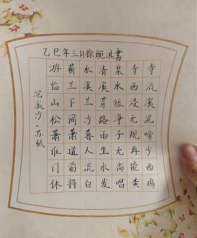 乙巳年三月徐 書
浣溪沙·苏轼
游蕲水清泉寺寺
临兰溪溪水西流
山下兰芽短浸溪
松间沙路净无泥
萧萧暮雨子规啼
谁道人生无再少
门前流水尚能西
休将白发唱黄鸡